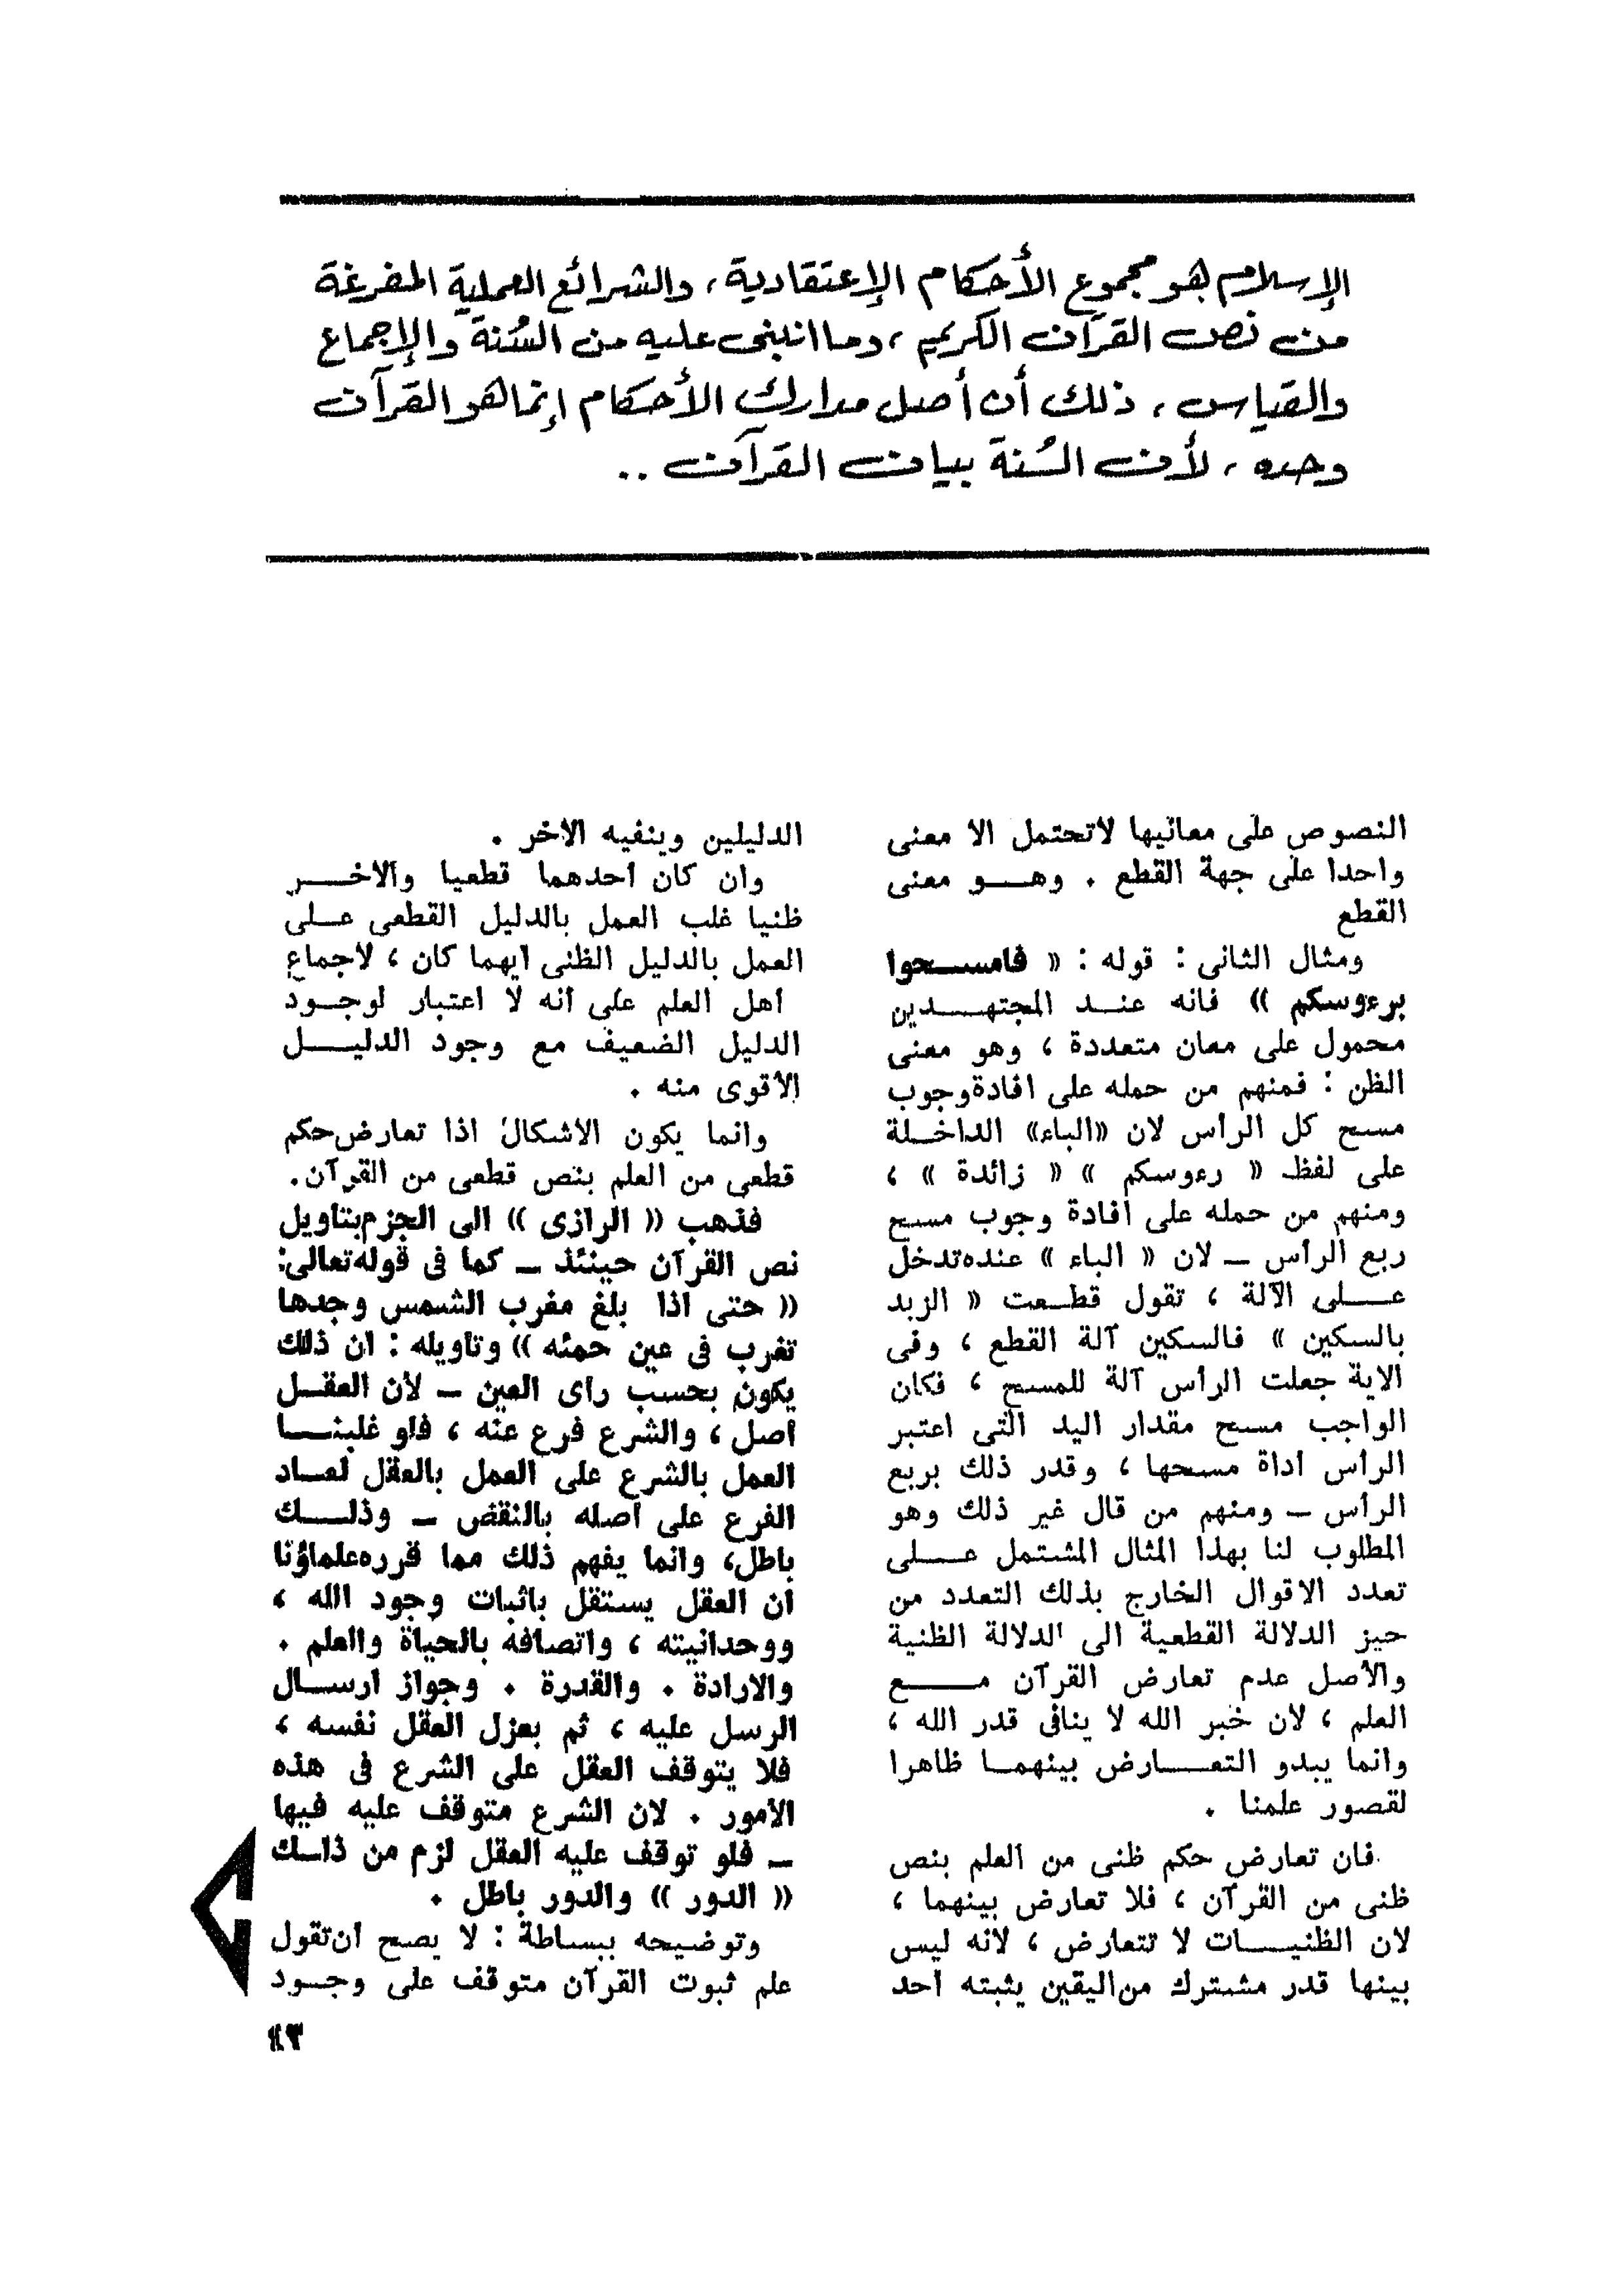 الإسلام هو مجموع الأحكام الإعتقادية، والشرائع العملية المفرغة
من نص القرآن الكريم، وما انبنى عليه من السُنة والإجماع
والقياس، ذلك أن أصل مدارك الأحكام إنما هو القرآن
وحده، لأن السُنة بيان القرآن ..
النصوص على معانيها لاتحتمل الا معنى
واحدا على جهة القطع . وهـــو معنى
القطع
ومثال الثانى : قوله : « فامســـحوا
برءوسكم » فانه عنــد المجتهــــدين
محمول على معان متعددة ، وهو معنى
الظن : فمنهم من حمله على افادة وجوب
مسح كل الرأس لان «الباء» الداخــلة
على لفظ « رءوسكم » « زائدة » ،
ومنهم من حمله على افادة وجوب مسح
ربع الرأس – لان « الباء » عنده تدخل
عـــلى الآلة ، تقول قطــعت « الزبد
بالسكين » فالسكين آلة القطع ، وفى
الاية جعلت الرأس آلة للمسح ، فكان
الواجب مسح مقدار اليد التى اعتبر
الرأس أداة مسحها ، وقدر ذلك بربع
الرأس – ومنهم من قال غير ذلك وهو
المطلوب لنا بهذا المثال المشتمل عـــلى
تعدد الاقوال الخارج بذلك التعدد من
حيز الدلالة القطعية الى الدلالة الظنية
والأصل عدم تعارض القرآن مـــــع
العلم ، لان خبر الله لا ينافى قدر الله ،
وانما يبدو التعـــارض بينهمــا ظاهرا
لقصور علمنا .
فان تعارض حكم ظنى من العلم بنص
ظنى من القرآن ، فلا تعارض بينهما ،
لان الظنيـــات لا تتعارض ، لأنه ليس
بينها قدر مشترك من اليقين يثبته أحد
الدليلين وينفيه الآخر .
وان كان أحدهما قطعيا والآخـــر
ظنيا غلب العمل بالدليل القطعى عــلى
العمل بالدليل الظنى أيهما كان ، لاجماع
أهل العلم على أنه لا اعتبار لوجــود
الدليل الضعيف مع وجود الدليـــل
الأقوى منه .
وانما يكون الاشكال اذا تعارض حكم
قطعى من العلم بنص قطعى من القرآن .
فذهب « الرازى » الى الجزم بتأويل
نص القرآن حينئذ – كما فى قوله تعالى:
« حتى اذا بلغ مغرب الشمس وجدها
تغرب فى عين حمئة » وتأويله : ان ذلك
يكون بحسب رأى العين – لأن العقــل
أصل ، والشرع فرع عنه ، فلو غلبنـــا
العمل بالشرع على العمل بالعقل لعــاد
الفرع على أصله بالنقض – وذلـــك
باطل، وانما يفهم ذلك مما قرره علماؤنا
ان العقل يستقل باثبات وجود الله ،
ووحدانيته ، واتصافه بالحياة والعلم .
والارادة . والقدرة . وجواز ارســال
الرسل عليه ، ثم بعزل العقل نفسه ،
فلا يتوقف العقل على الشرع فى هذه
الأمور . لان الشرع متوقف عليه فيها
– فلو توقف عليه العقل لزم من ذلــك
« الدور » والدور باطل .
وتوضيحه ببساطة : لا يصح ان تقول
علم ثبوت القرآن متوقف على وجــود